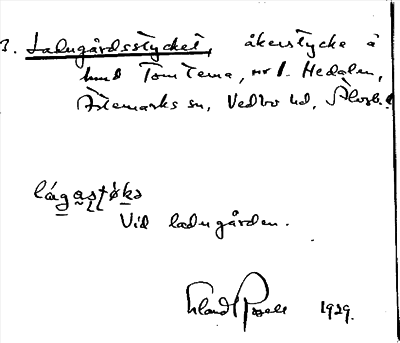 3. Ladugårdsstycket, åkerstycke å
hmd Tomterna, nr 1. Hedalen,
Ärtemarks sn, Vedbo hd, Älvsb.
lágaʂʈøkə
Vid ladugården.
1929.